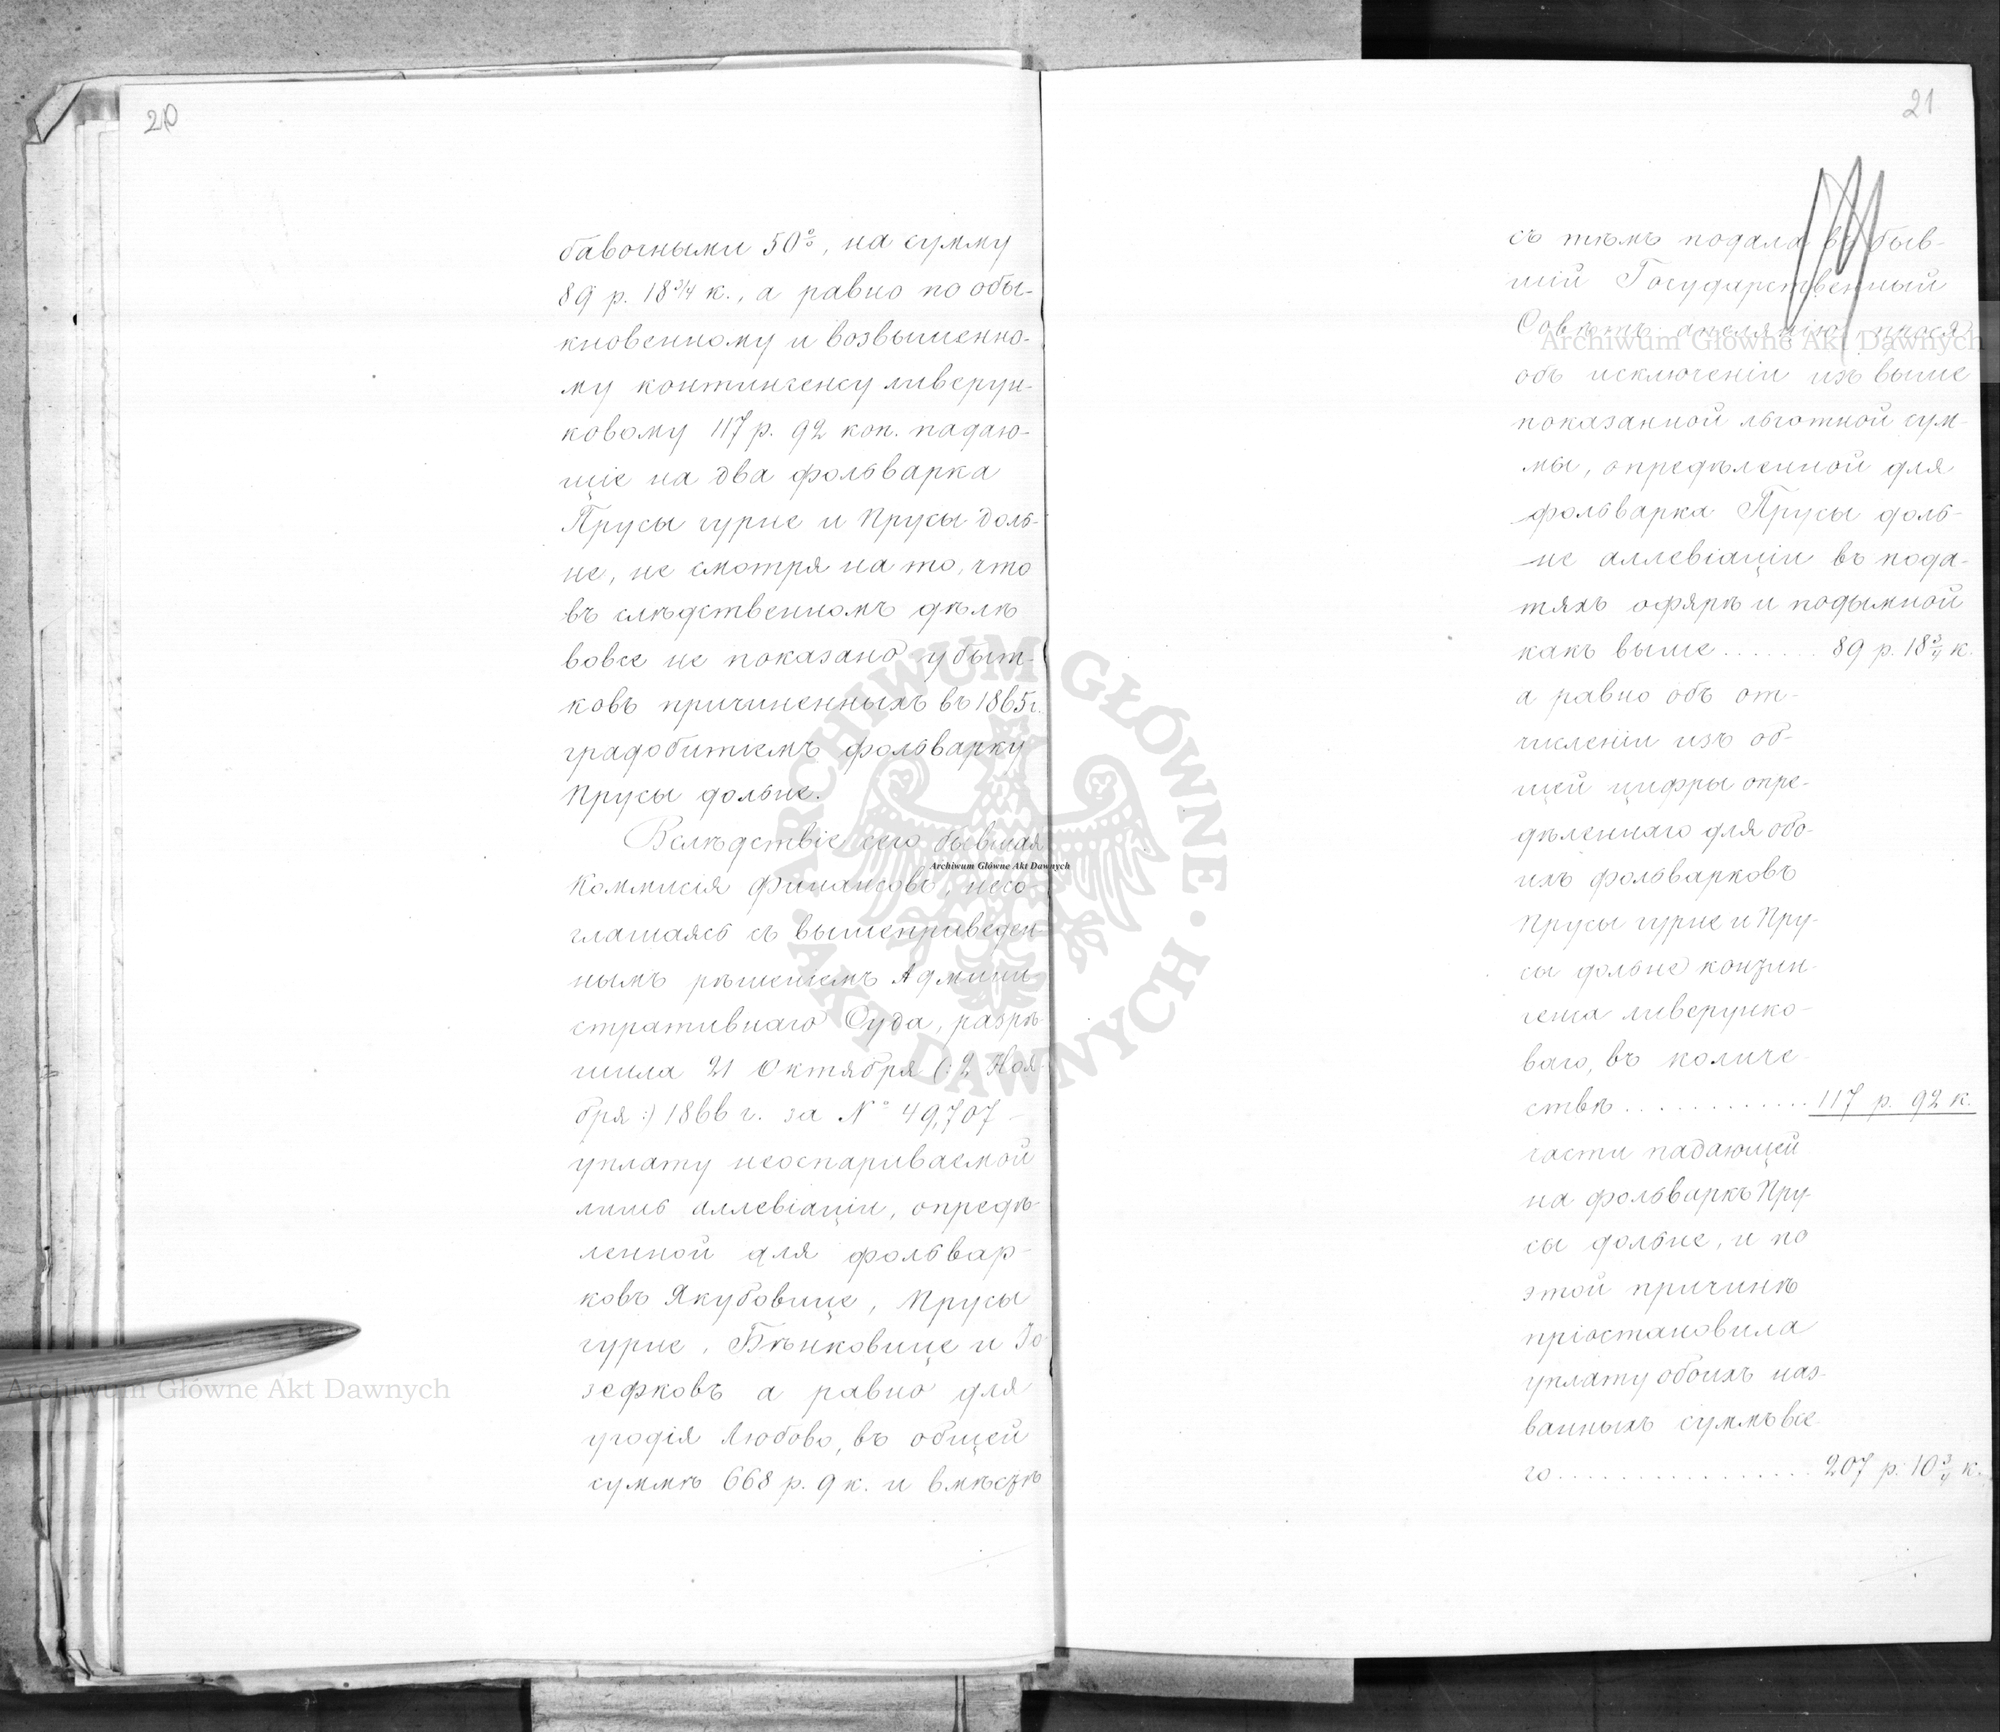 20
бавочными 50%, на сумму
89 р. 18 3/4 к., а равно по обы-
кновенному и возвышенно-
му контингенсу ливерун-
ковому 117 р. 92 коп. падаю-
щіе на два фольварка
Прусы гурне и Прусы доль-
не, не смотря на то, что
въ слѣдственномъ дѣлѣ
вовсе не показано убыт-
ковъ причиненныхъ въ 1865 г.
градобитіемъ фольварку
Прусы дольне.
Вслѣдствіе сего бывшая
Коммисія Финансовъ, несо-
глашаясь съ вышеприведен-
нымъ рѣшеніемъ Админи-
стративнаго Суда, разрѣ-
шила 21 Октября (: 2 Ноя-
бря :) 1866 г. за № 49,707 –
уплату неоспариваемой
лишь аллевіаціи, опредѣ-
ленной для фольвар-
ковъ Якубовице, Прусы
гурне, Бѣнковице и Іо-
зефковъ а равно для
угодія Любово, въ общей
суммѣ 668 р. 9 к. и вмѣстѣ
21
съ тѣмъ подала въ быв-
шій Государственный
Совѣтъ апелляцію прося
объ исключеніи изъ выше
показанной льготной сум-
мы, опредѣленной для
фольварка Прусы доль-
не аллевіаціи въ пода-
тяхъ офярѣ и подымной
какъ выше....... 89 р. 18 3/4 к.
а равно объ от-
численіи изъ об-
щей цифры опре-
дѣленнаго для обо-
ихъ фольварковъ
Прусы гурне и Пру-
сы дольне контин-
генса ливерунко-
ваго, въ количе-
ствѣ............. 117 р. 92 к.
части падающей
на фольваркъ Пру-
сы дольне, и по
этой причинѣ
пріостановила
уплату обоихъ наз-
ванныхъ суммъ все-
го................. 207 р. 10 3/4 к.
Archiwum Główne Akt Dawnych
Archiwum Główne Akt Dawnych
Archiwum Główne Akt Dawnych
ARCHIWUM GŁÓWNE · AKT DAWNYCH ·